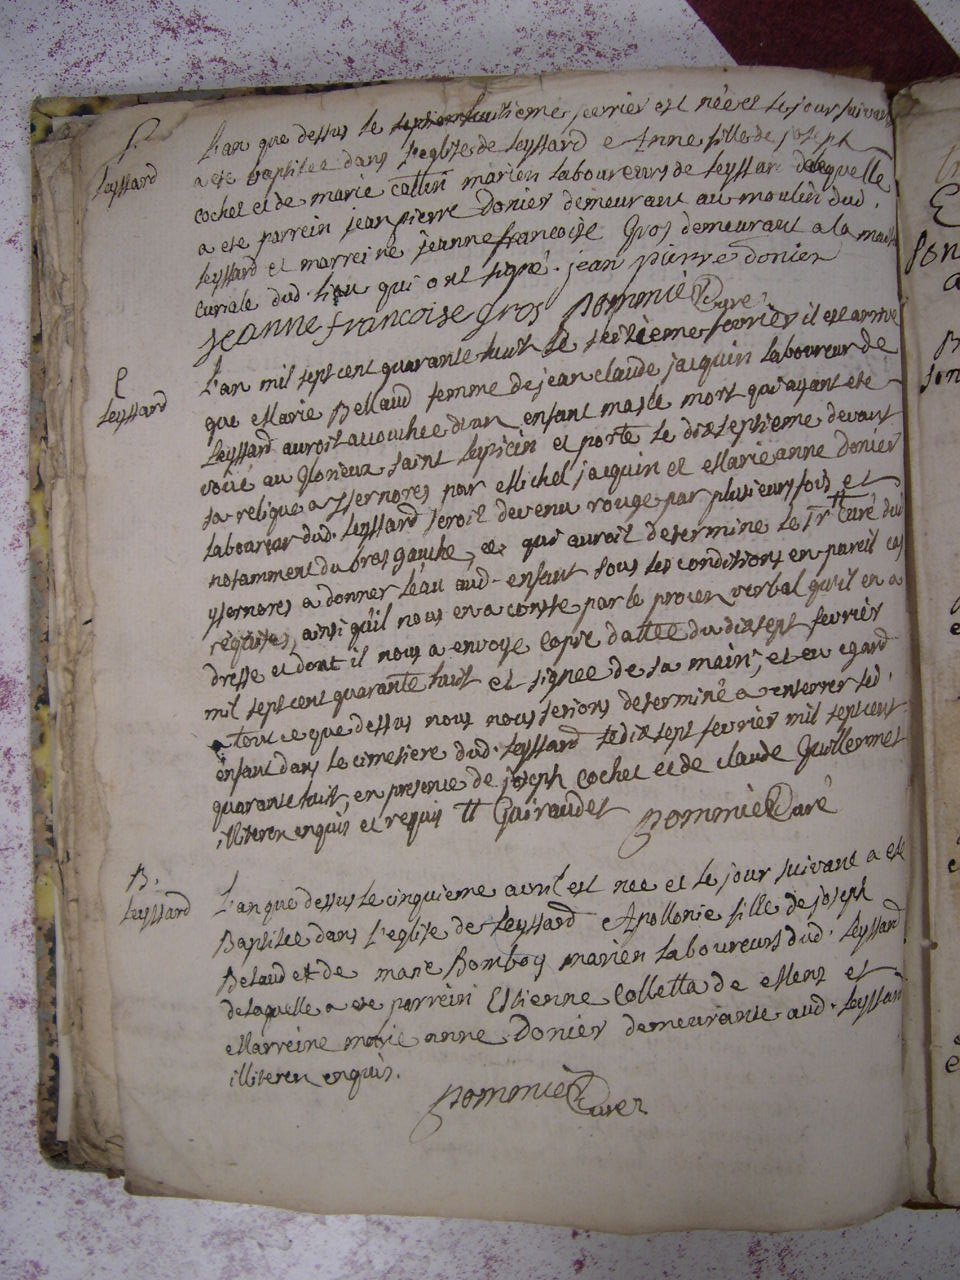 B.
Leyssard
L'an que dessus le huitieme fevrier est née et le jour suivant
a ete baptisée dans l'eglise de Leyssard Anne fille de joseph
cochet et de marie cattin mariéz laboureurs de leyssard de laquelle
a ete parrein jean pierre Donier demeurant au moulin dud.
leyssard et marreine jeanne francoise Gros demeurant a la maison
curiale dud. lieu qui ont signé. jean pierre donier
jeanne francoise gros pommiéz Curé
E
Leyssard
L'an mil sept cent quarante huit le seizieme fevrier il est arrivé
que Marie Bellaud femme de jean claude jacquin laboureur de
Leyssard auroit accouchée d'un enfant masle mort qui ayant ete
voüé au glorieux saint lupicin et porté le dixseptieme devant
sa relique a yzernores par Michel jacquin et Marie anne Donier
laboureur dud. Leyssard seroit devenu rouge par plusieurs fois et
notamment du bras gauche, ce qui auroit determine le Sr Curé dud
yzernores a donner l'eau aud. enfant sous les conditions en pareil cas
requises, ainsi qu'il nous en a conste par le procez verbal qu'il en a
dressé et dont il nous a envoyé copie dattée du dixsept fevrier
mil sept cent quarante huit et signée de sa main, et eu egard
a tout ce que dessus nous nous serions determiné a enterrer led.
enfant dans le cimetiere dud. leyssard le dixsept fevrier mil sept cent
quarante huit, en presence de joseph cochet et de claude Guillermet
illiterez enquis et requis Gairaudet pommiéz Curé
B.
Leyssard
L'an que dessus le cinquieme avril est née et le jour suivant a ete
Baptisée dans l'eglise de Leyssard Apollonie fille de joseph
Belaud et de marie Bomboy mariéz laboureurs dud. leyssard
de laquelle a ete parrein Estienne Colletta de et
Marreine marie anne Donier demeurante aud. leyssard
illiterez enquis.
pommiéz Curéz